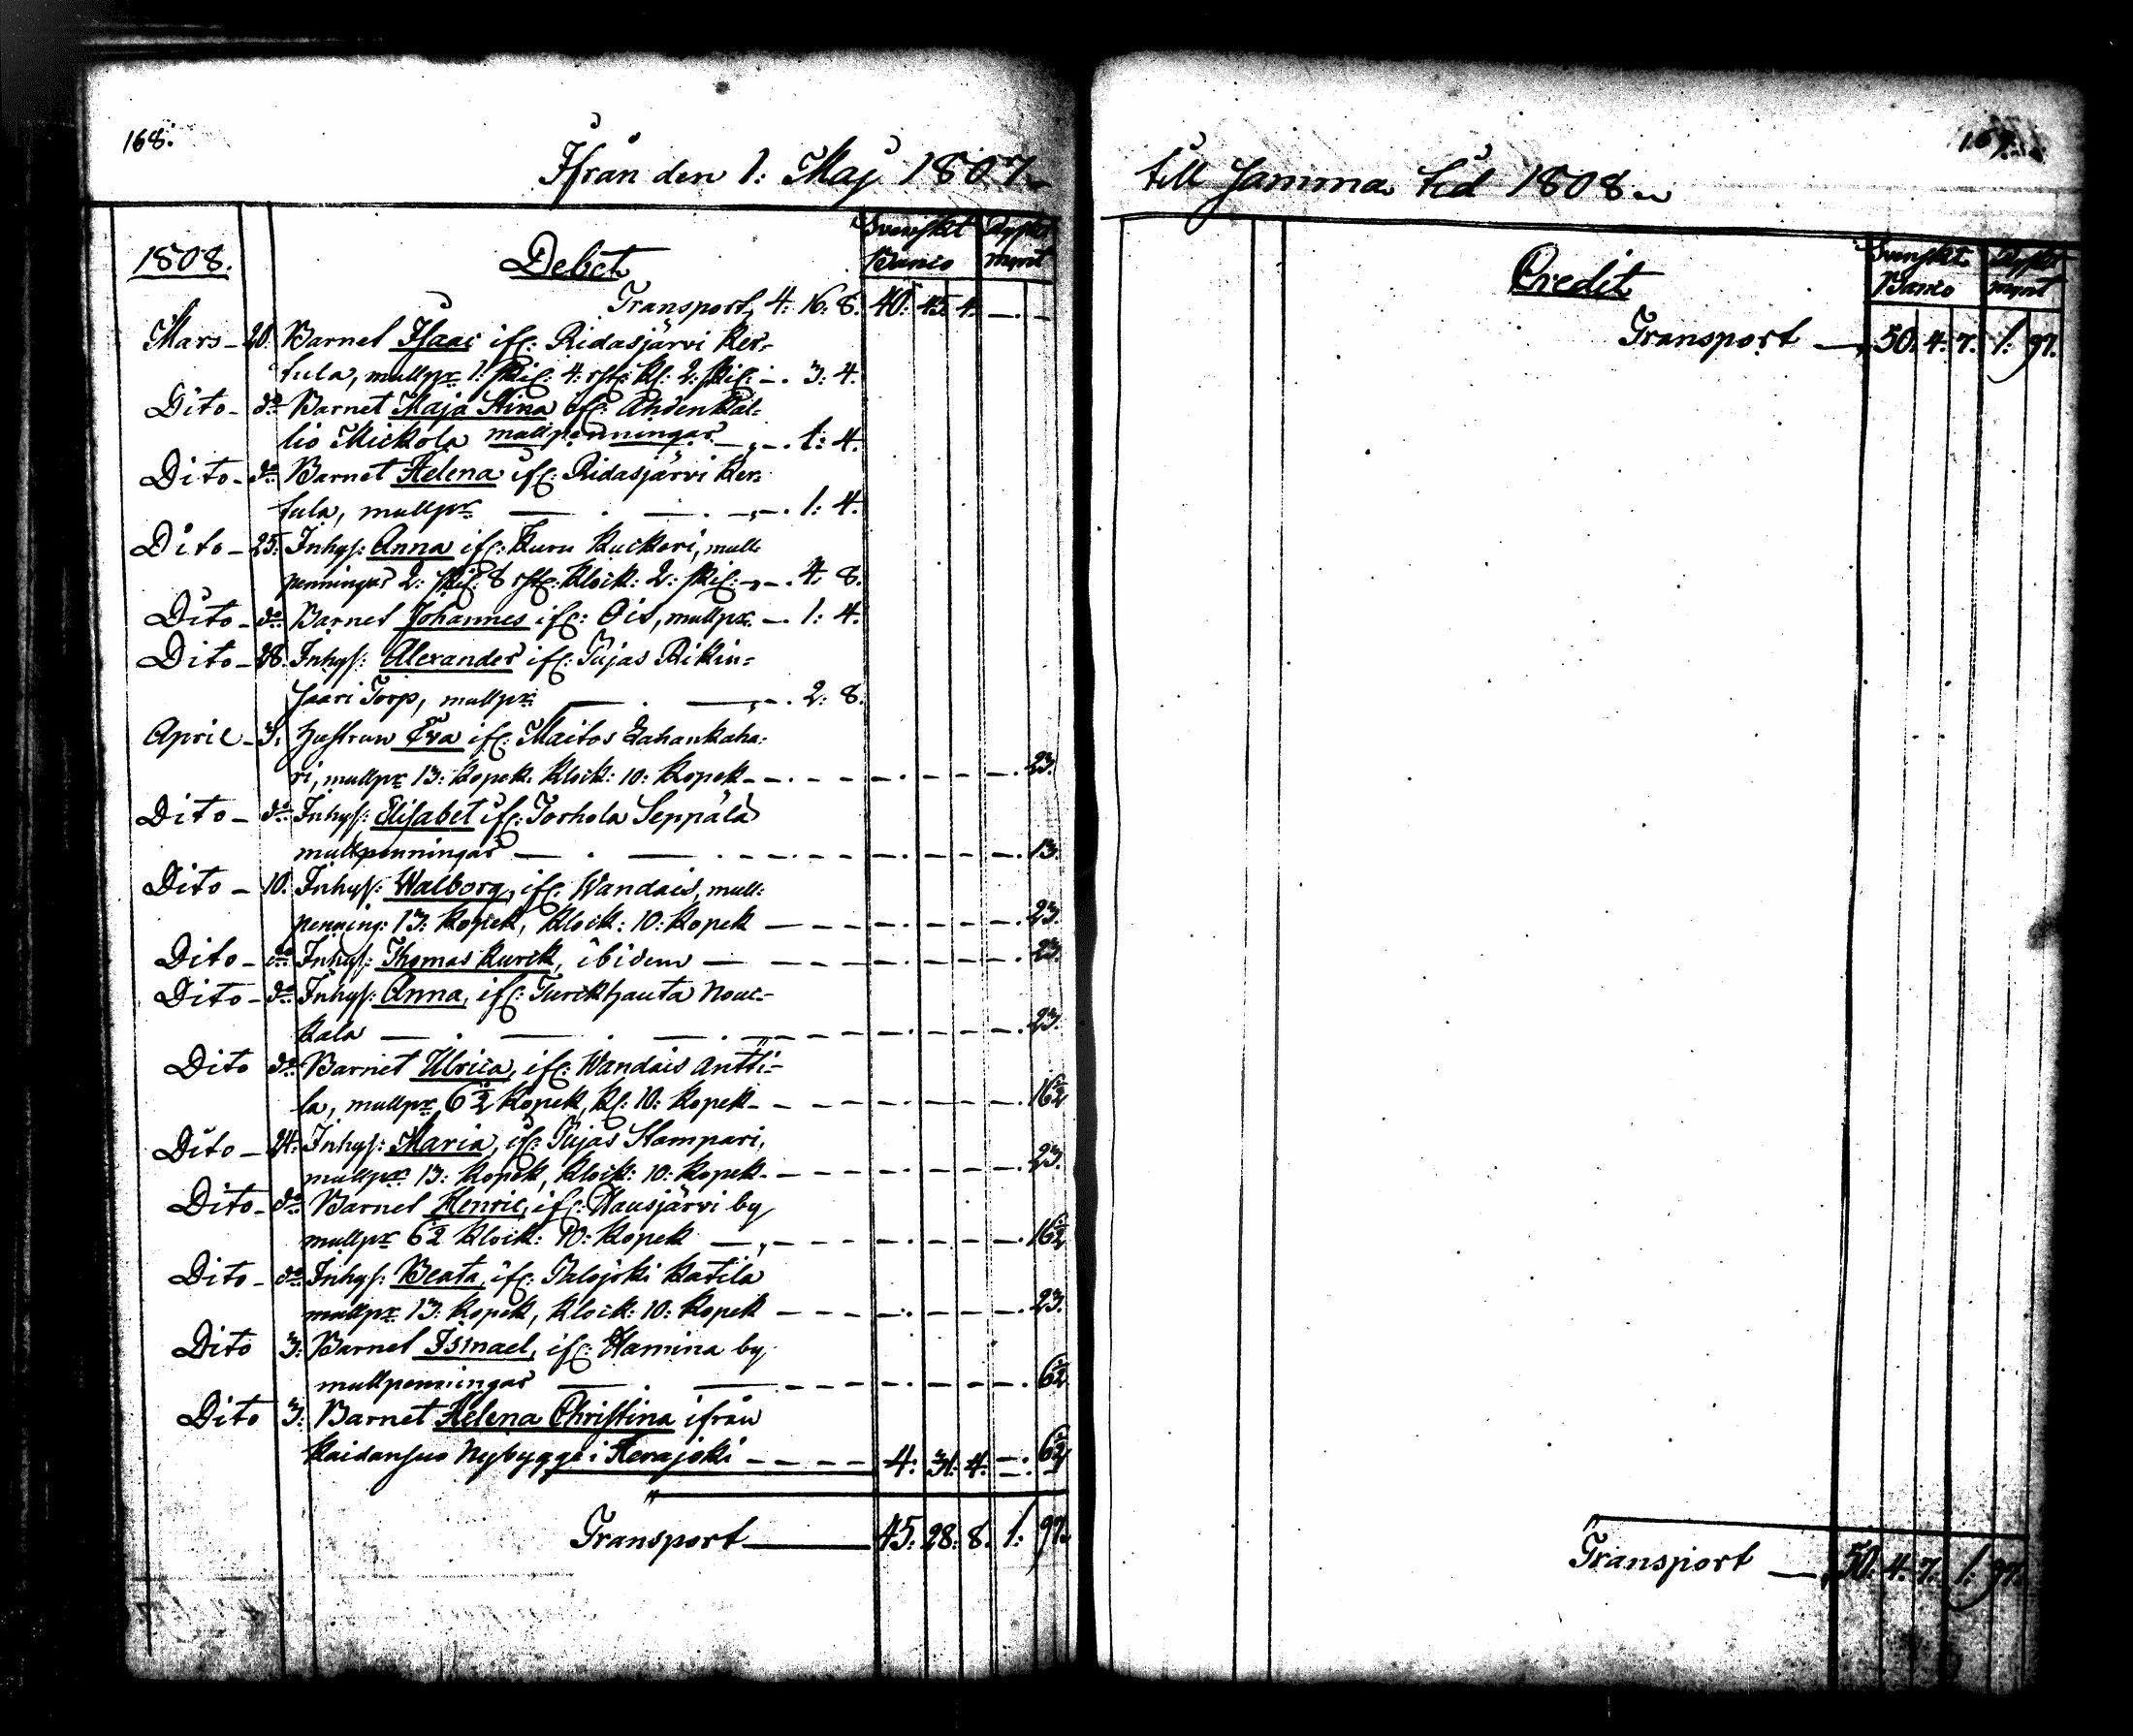 168.
Ifrån den 1. Maj 1807.
1808.
Debet
Svenskt Banco
Ryskt mynt
Transport, 4: 16: 8. 40: 45. 4. — . —
Mars - 20. Barnet Isaac ifr: Ridasjärvi Ker=
tula, mullpr 1: skil: 4: rst: Kl: 2: skil: - . 3: 4.
Dito - do Barnet Maja Stina ifr: Ahdenkal=
lio Mickola mullpenningar - . 1: 4.
Dito - do Barnet Helena ifr: Ridasjärvi Ker=
tula, mullpr - . 1: 4.
Dito - 25. Inhys: Anna ifr: Kuru Kuckori, mull=
penningar 2: skil: 8 rst: Klock: 2: skil: - . 4. 8.
Dito - do Barnet Johannes ifr: Ois, mullpr. - . 1: 4.
Dito - 28. Inhys: Alexander ifr: Pujas Rikin=
saari Torp, mullpr - . 2: 8.
April - 3. Hustrun Eva ifr: Maitos Lahankaha=
ri, mullpr 13: Kopek: Klock: 10: Kopek - 23.
Dito - do Inhys: Elisabet ifr: Torhola Seppälä
mullpenningar - 13.
Dito - 10. Inhys: Walborg, ifr: Wandais, mull=
penning: 13: Kopek, Klock: 10: Kopek - 23.
Dito - do Inhys: Thomas Kurck, ibidem - 23.
Dito - do Inhys: Anna, ifr: Turckhauta Nouc=
kala - 23.
Dito do Barnet Ulrica, ifr: Wandais Antti=
la, mullpr 6½ Kopek, Kl: 10: Kopek - 16½
Dito - 24. Inhys: Maria, ifr: Pujas Stampari,
mullpr 13: Kopek, Klock: 10: Kopek - 23.
Dito - do Barnet Henric, ifr: Hausjärvi by
mullpr 6½ Klock: 10: Kopek - 16½
Dito - do Inhys: Beata, ifr: Palojoki Katila
mullpr 13: Kopek, Klock: 10: Kopek - 23.
Dito 3: Barnet Ismael, ifr: Hamina by
mullpenningar - 6½
Dito 3: Barnet Helena Christina ifrån
Kaidansuo Nybygge i Herajoki - 4: 31: 4. — . 6½
Transport — 45: 28: 8. 1: 97.
169.
till samma tid 1808.
Credit
Svenskt Banco
Ryskt mynt
Transport — 50: 4: 7. 1: 97.
Transport — 50: 4: 7. 1: 97.